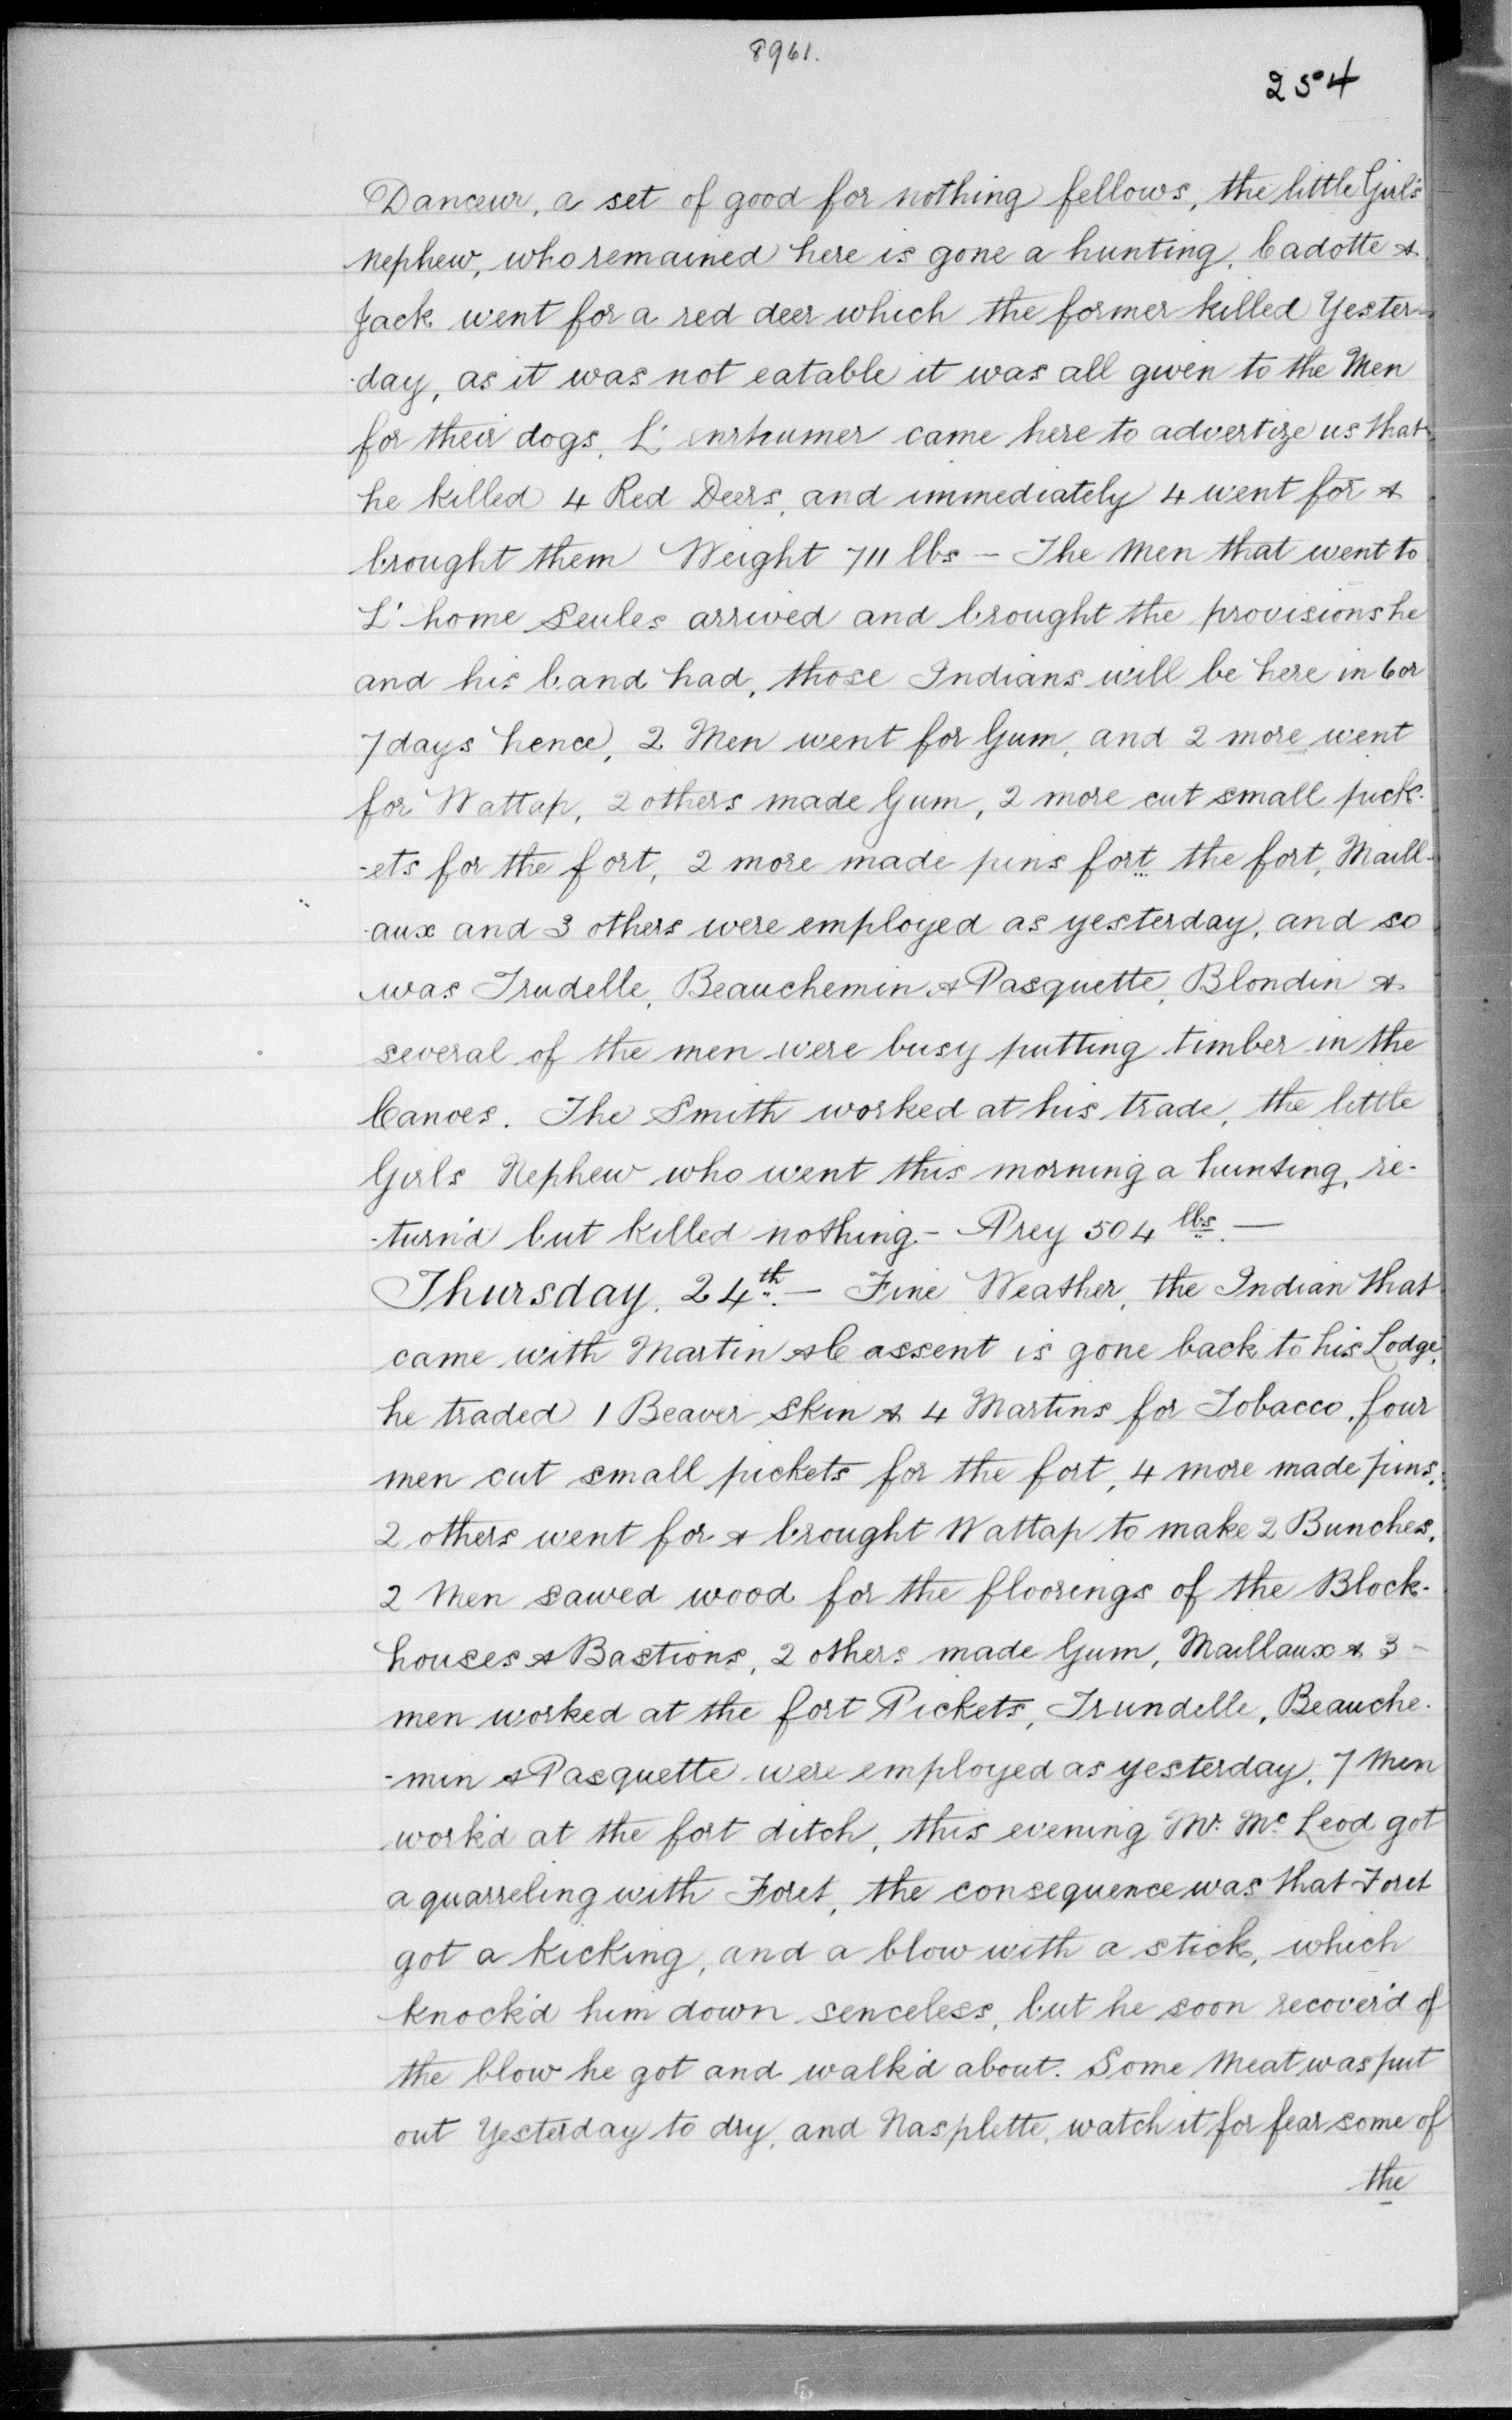 8961.
254
Danceur, a set of good for nothing fellows, the little Girl's
nephew, who remained here is gone a hunting, Cadotte &
Jack went for a red deer which the former killed Yester-
-day, as it was not eatable it was all given to the Men
for their dogs, L' enrhumer came here to advertize us that
he killed 4 Red Deers, and immediately 4 went for &
brought them Weight 711 lbs – The Men that went to
L' home Seules arrived and brought the provisions he
and his band had, those Indians will be here in 6 or
7 days hence, 2 Men went for Gum, and 2 more went
for Wattap, 2 others made Gum, 2 more cut small pick-
-ets for the fort, 2 more made pins fort the fort, Maill-
-aux and 3 others were employed as yesterday, and so
was Trudelle, Beauchemin & Pasquette, Blondin &
several of the men were busy putting timber in the
Canoes. The Smith worked at his trade, the little
Girls Nephew who went this morning a hunting, re-
-turn'd but killed nothing – Prey 504 lbs. —
Thursday, 24th. — Fine Weather, the Indian that
came with Martin & Cassent is gone back to his Lodge,
he traded 1 Beaver Skin & 4 Martins for Tobacco, four
men cut small pickets for the fort, 4 more made pins,
2 others went for & brought Wattap to make 2 Bunches,
2 Men sawed wood for the floorings of the Block-
houses & Bastions, 2 others made Gum, Maillaux & 3 –
men worked at the fort Pickets, Trundelle, Beauche-
-min & Pasquette were employed as yesterday, 7 Men
work'd at the fort ditch, this evening Mr. Mc Leod got
a quarreling with Foret, the consequence was that Foret
got a kicking, and a blow with a stick, which
knock'd him down senceless, but he soon recover'd of
the blow he got and walk'd about. Some Meat was put
out Yesterday to dry, and Nasplette, watch it for fear some of
the